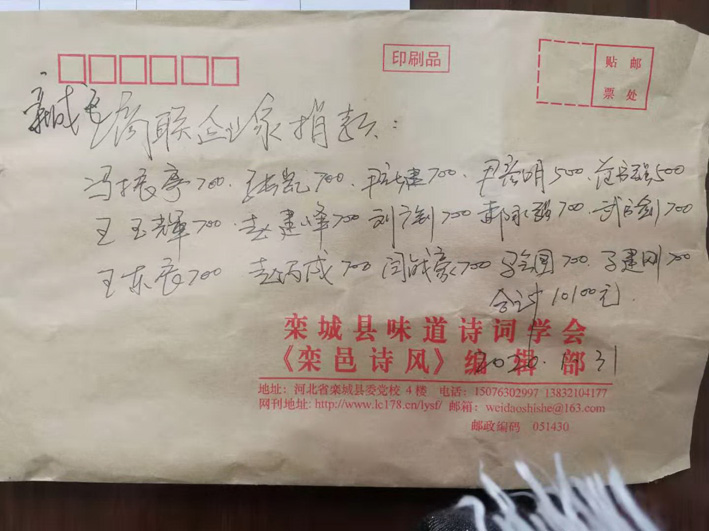 印刷品
贴 邮
票 处
栾城区工商联企业家捐款:
冯振亭700. 凯700. 建700. 尹彦明500. 500
王玉辉700. 赵建峰700 刘 700 700. 武 剑700
王东辰700 赵丙成700 闫战豪700 国700. 建刚700
合计10100元.
栾城县味道诗词学会
《栾邑诗风》编辑部
31
地址: 河北省栾城县委党校 4 楼 电话: 15076302997 13832104177
网刊地址: http://www.lc178.cn/lysf/ 邮箱: weidaoshishe@163.com
邮政编码 051430